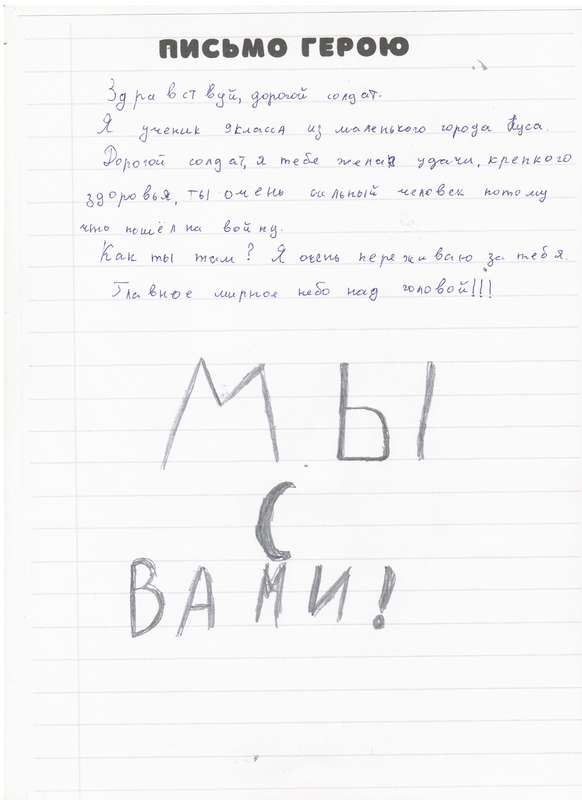 ПИСЬМО ГЕРОЮ
Здравствуй, дорогой солдат.
Я ученик 9класса из маленького города Куса.
Дорогой солдат, я тебе желаю удачи, крепкого
здоровья, ты очень сильный человек потому
что пошёл на войну.
Как ты там? Я очень переживаю за тебя.
Главное мирное небо над головой!!!
МЫ
С
ВАМИ!